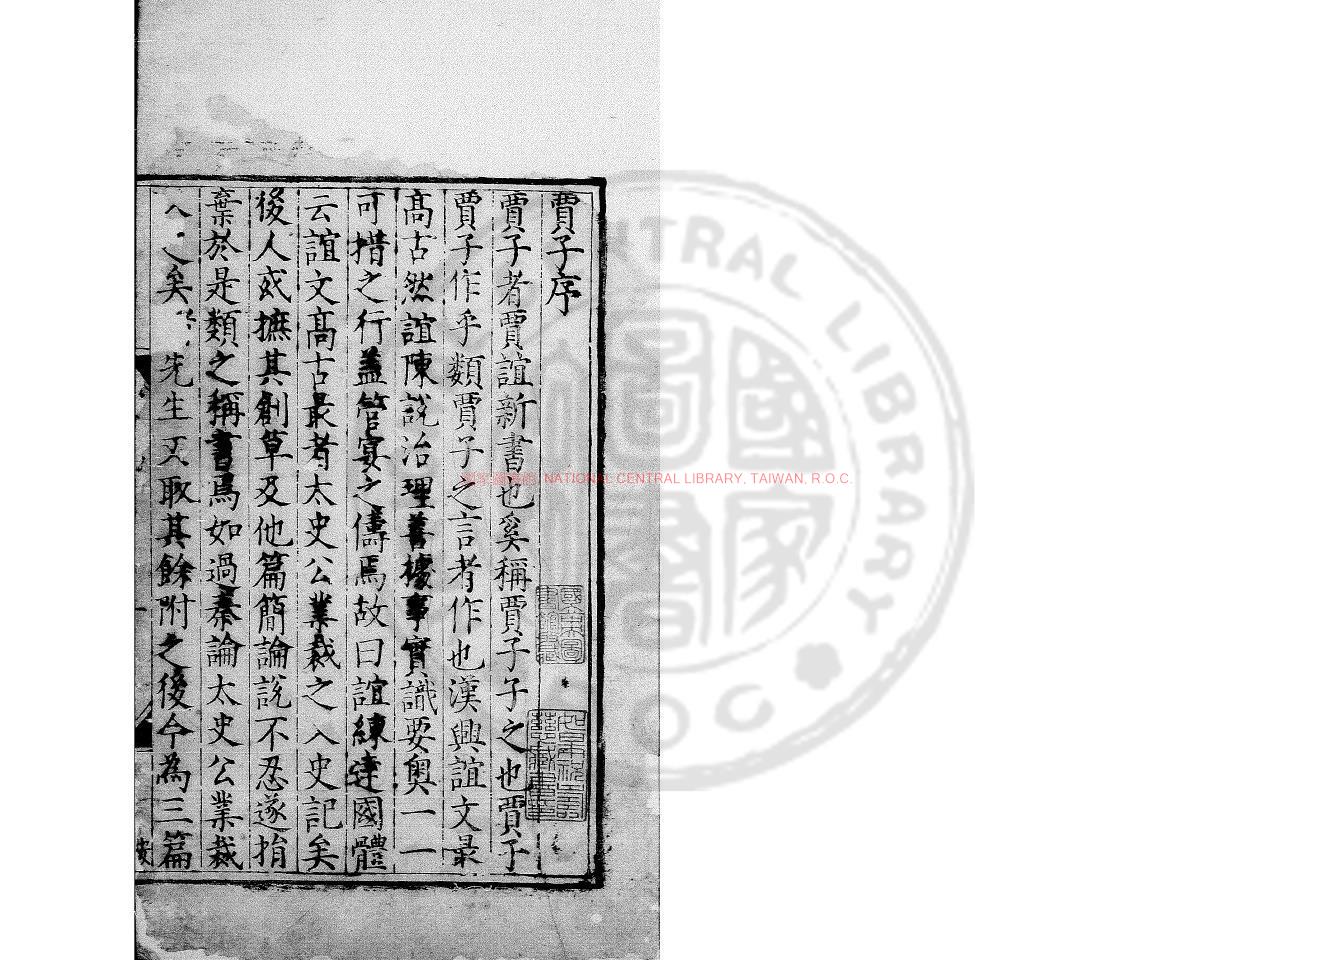 賈子序
賈子者賈誼新書也奚稱賈子子之也賈子
賈子作乎類賈子之言者作也漢興誼文最
高古然誼陳說治理善據事實識要奧一一
可措之行蓋管晏之儔焉故曰誼練達國體
云誼文高古最者太史公業裁之入史記矣
後人或摭其創草及他篇簡論說不忍遂捐
棄於是類之稱書焉如過秦論太史公業裁
入之矣先生又取其餘附之後今為三篇
國立中央圖書館 NATIONAL CENTRAL LIBRARY, TAIWAN, R.O.C.
CENTRAL LIBRARY R.O.C